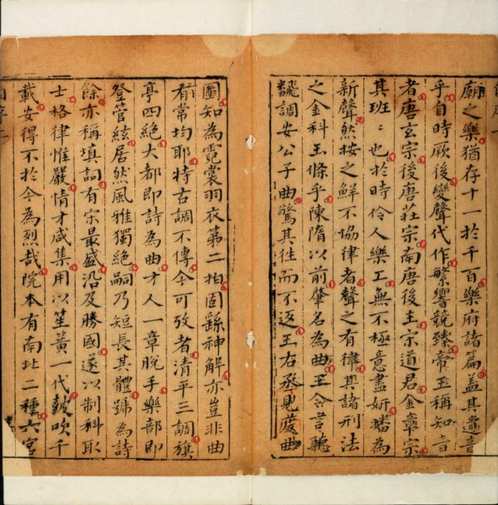 廟之樂猶存十一於千百樂府諸篇蓋其遺音
乎自時厥後變聲代作繁響競臻帝王稱知音
者唐玄宗後唐莊宗南唐後主宋道君金章宗
其班〻也於時伶人樂工無不極意盡妍播為
新聲然按之鮮不協律者聲之有律其諸刑法
之金科玉條乎陳隋以前肇名為曲王令言聽
飜調安公子曲驚其徃而不返王右丞見度曲
圖知為霓裳羽衣第二拍固繇神解亦豈非曲
有常均耶特古調不傳今可攷者清平三調旗
亭四絕大都即詩為曲才人一章脫手樂部即
登管絃居然風雅獨絕嗣乃短長其體號為詩
餘亦稱填詞有宋最盛沿及勝國遂以制科取
士格律惟嚴情才咸集用以笙簧一代皷吹千
載安得不於今為烈哉院本有南北二種六宮